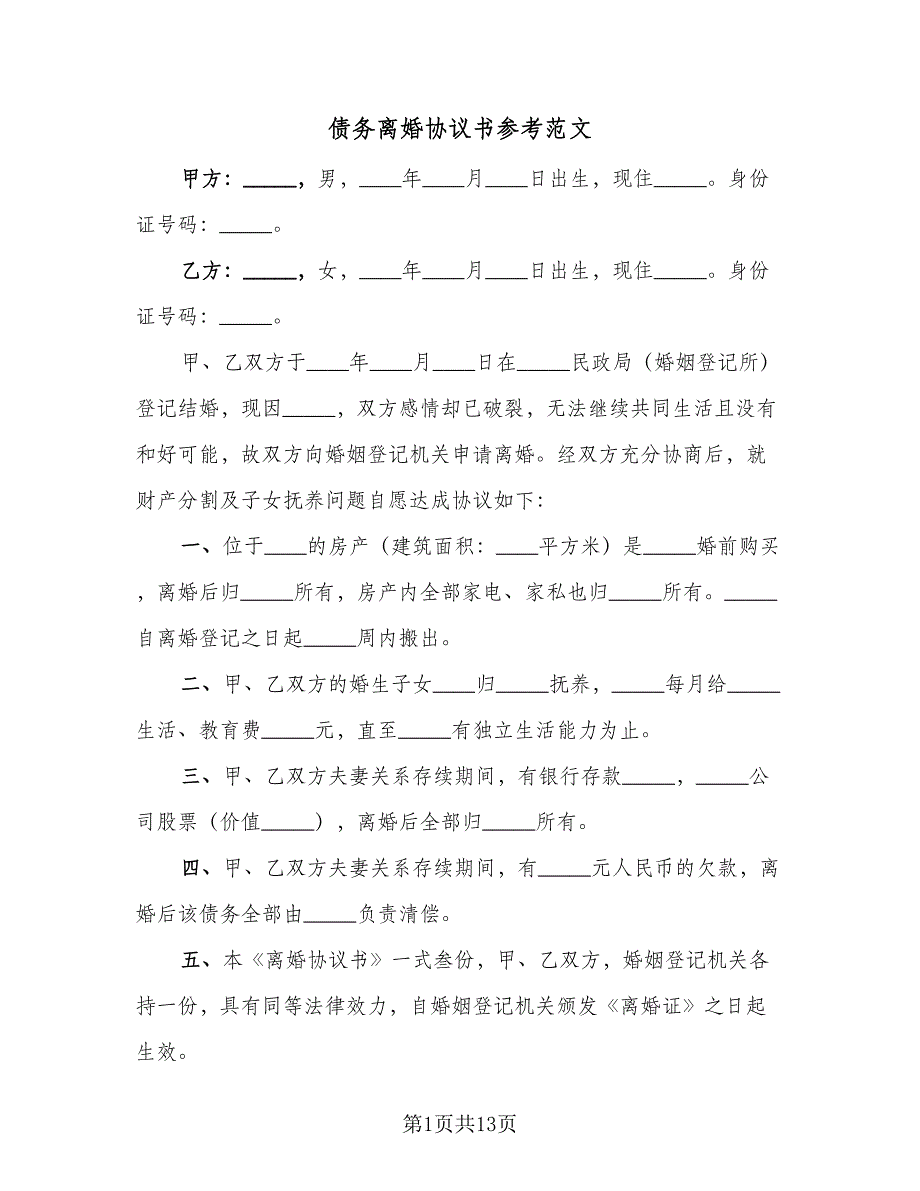 债务离婚协议书参考范文
甲方：_____，男，____年____月____日出生，现住_____。身份
证号码：_____。
乙方：_____，女，____年____月____日出生，现住_____。身份
证号码：_____。
甲、乙双方于____年____月____日在_____民政局（婚姻登记所）
登记结婚，现因_____，双方感情却已破裂，无法继续共同生活且没有
和好可能，故双方向婚姻登记机关申请离婚。经双方充分协商后，就
财产分割及子女抚养问题自愿达成协议如下：
一、位于____的房产（建筑面积：____平方米）是_____婚前购买
，离婚后归_____所有，房产内全部家电、家私也归_____所有。_____
自离婚登记之日起_____周内搬出。
二、甲、乙双方的婚生子女____归_____抚养，_____每月给_____
生活、教育费_____元，直至_____有独立生活能力为止。
三、甲、乙双方夫妻关系存续期间，有银行存款_____，_____公
司股票（价值_____），离婚后全部归_____所有。
四、甲、乙双方夫妻关系存续期间，有_____元人民币的欠款，离
婚后该债务全部由_____负责清偿。
五、本《离婚协议书》一式叁份，甲、乙双方，婚姻登记机关各
持一份，具有同等法律效力，自婚姻登记机关颁发《离婚证》之日起
生效。
第1页共13页